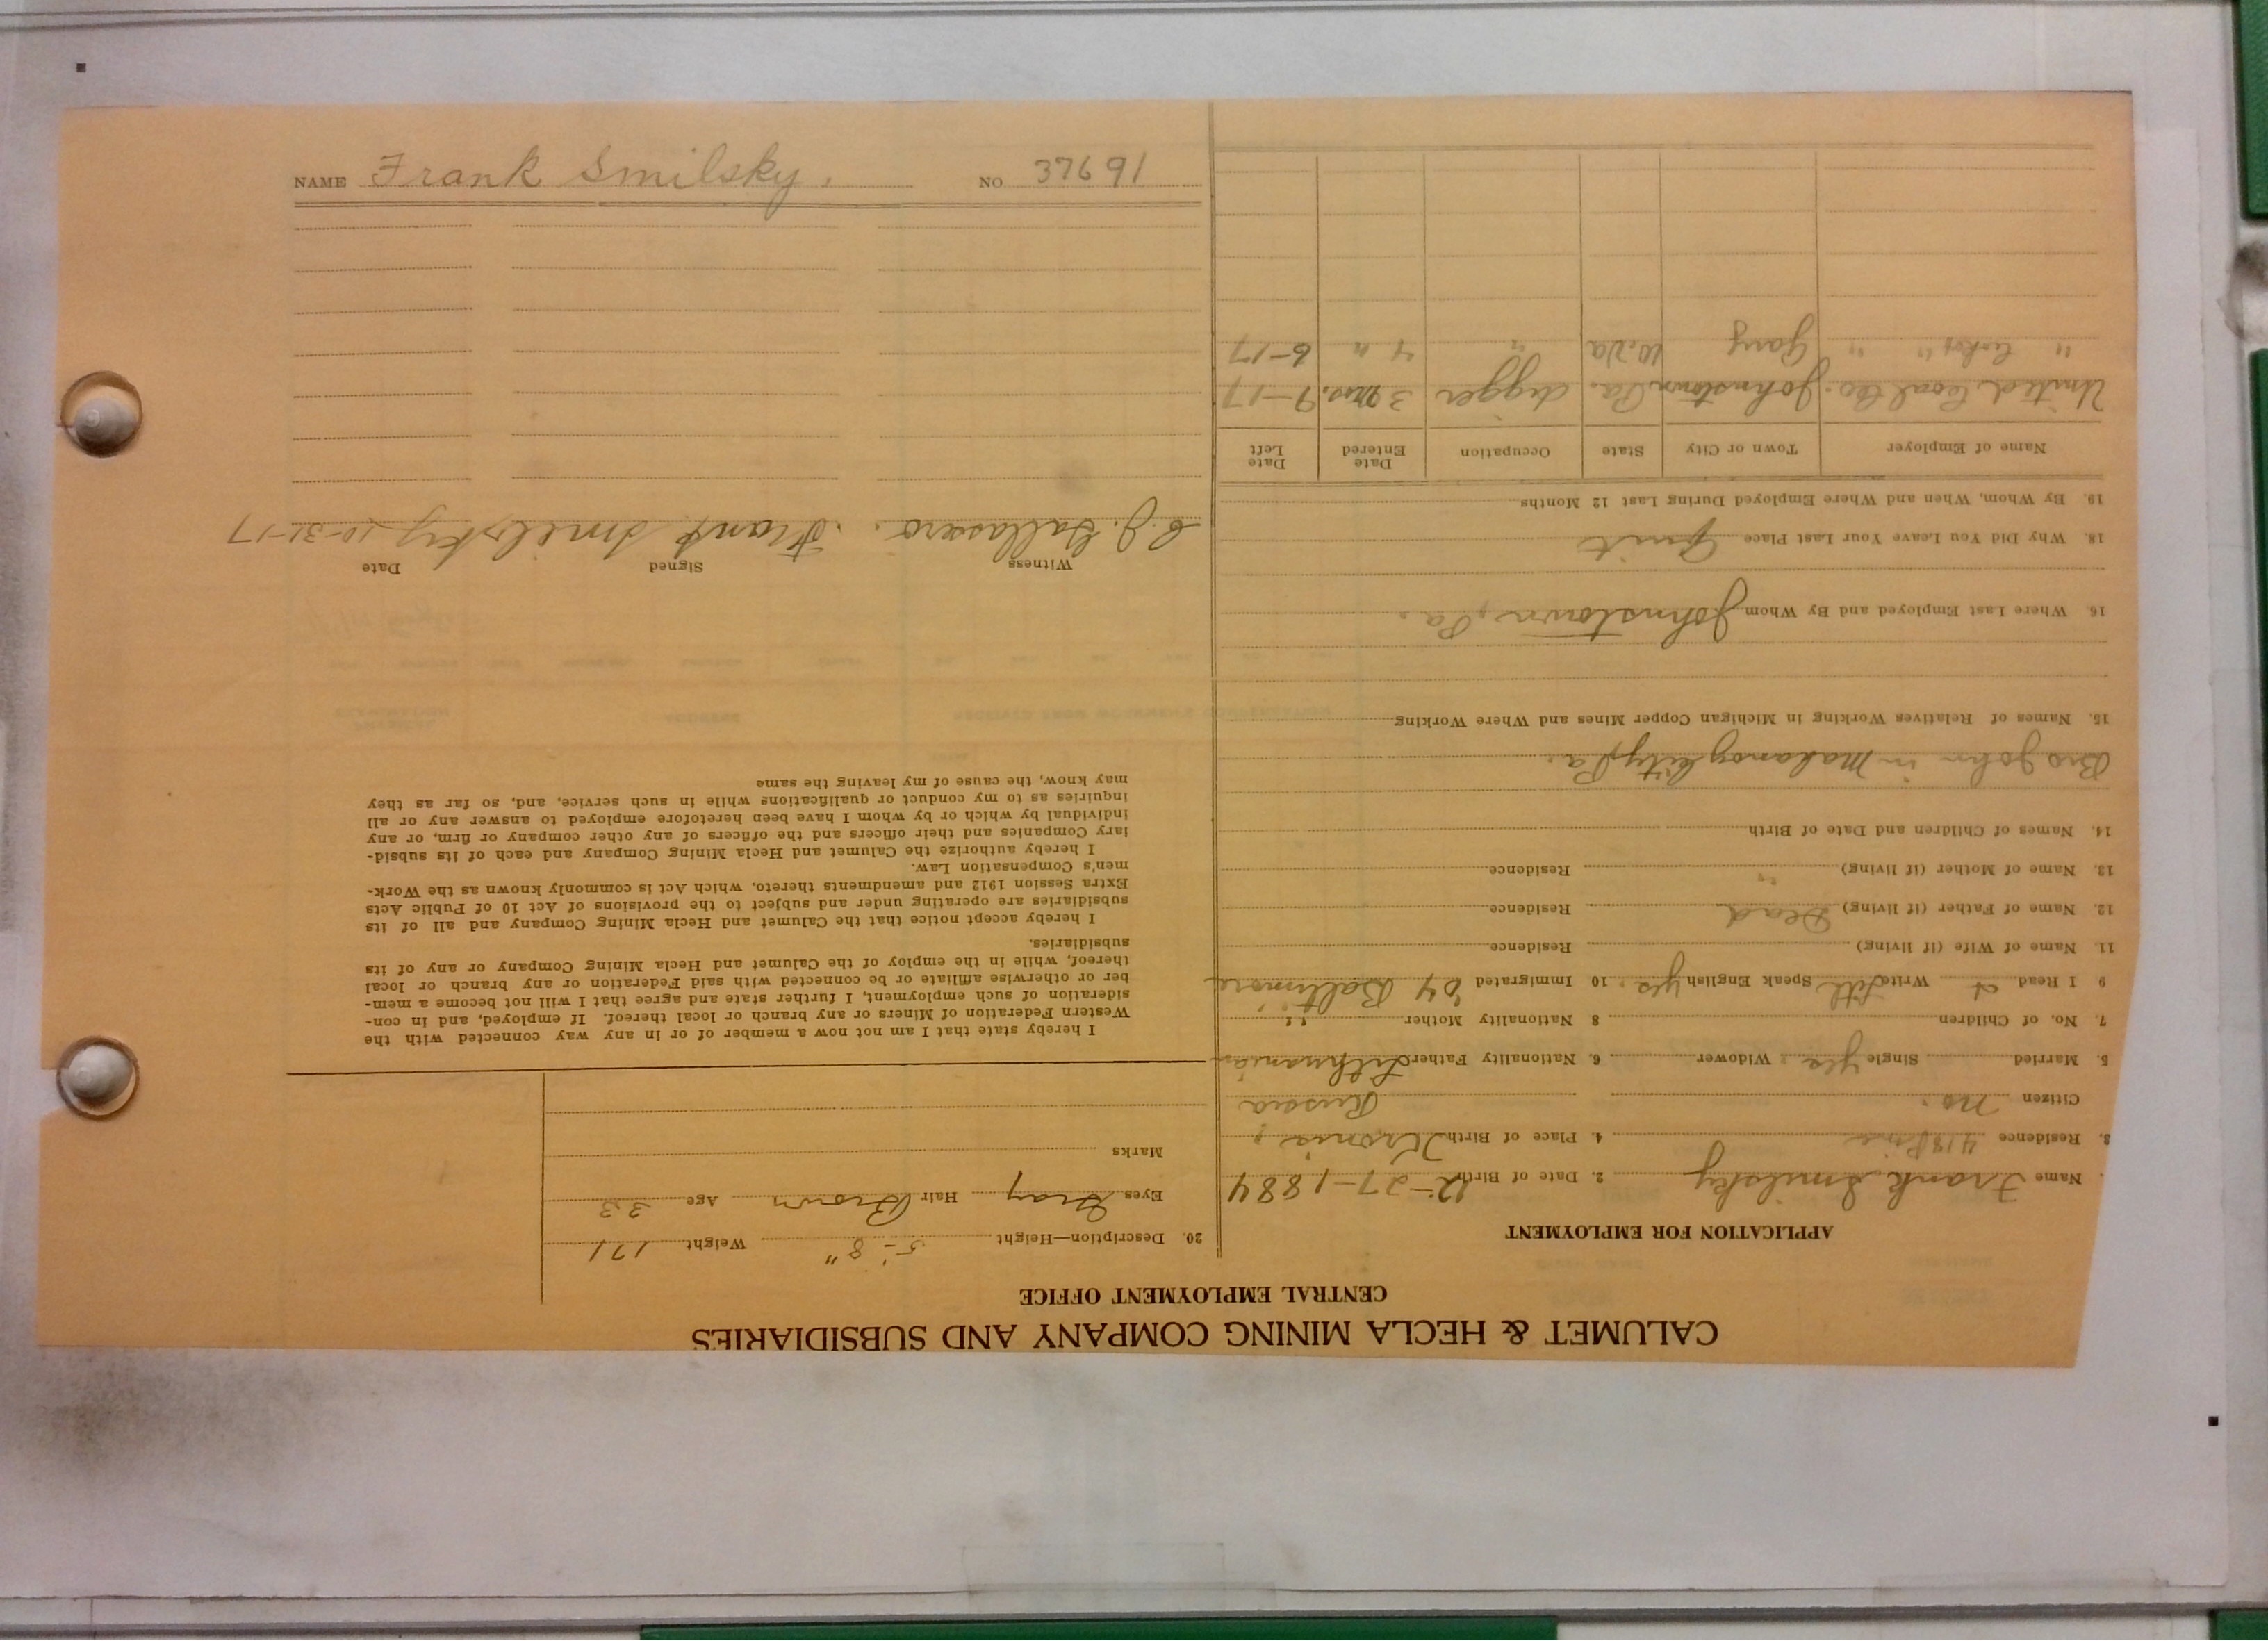 NAME Frank Smilsky. NO 37691
CALUMET & HECLA MINING COMPANY AND SUBSIDIARIES
CENTRAL EMPLOYMENT OFFICE
APPLICATION FOR EMPLOYMENT
Name Frank Smilsky 2. Date of Birth 12-27-1884
3. Residence 418 Pine 4. Place of Birth
Citizen no. Russia
5. Married Single yes Widower 6. Nationality Father Lithuania
7. No. of Children 8 Nationality Mother "
9 I Read Write Speak English yes 10 Immigrated '04 Baltimore
11. Name of Wife (if living) Residence
12. Name of Father (if living) Dead Residence
13. Name of Mother (if living) " Residence
14. Names of Children and Date of Birth
Bro John in Mahanoy City, Pa.
15. Names of Relatives Working in Michigan Copper Mines and Where Working
16. Where Last Employed and By Whom Johnstown, Pa.
18. Why Did You Leave Your Last Place Quit
19. By Whom, When and Where Employed During Last 12 Months
Name of Employer Town or City State Occupation Date Entered Date Left
United Coal Co. Johnstown Pa. digger 3 mos. 9-17
" " " Gary W.Va " 4 " 6-17
20. Description—Height 5'-8" Weight 171
Eyes Gray Hair Brown Age 33
Marks
I hereby state that I am not now a member of or in any way connected with the
Western Federation of Miners or any branch or local thereof. If employed, and in con-
sideration of such employment, I further state and agree that I will not become a mem-
ber or otherwise affiliate or be connected with said Federation or any branch or local
thereof, while in the employ of the Calumet and Hecla Mining Company or any of its
subsidiaries.
I hereby accept notice that the Calumet and Hecla Mining Company and all of its
subsidiaries are operating under and subject to the provisions of Act 10 of Public Acts
Extra Session 1912 and amendments thereto, which Act is commonly known as the Work-
men's Compensation Law.
I hereby authorize the Calumet and Hecla Mining Company and each of its subsid-
iary Companies and their officers and the officers of any other company or firm, or any
individual by which or by whom I have been heretofore employed to answer any or all
inquiries as to my conduct or qualifications while in such service, and, so far as they
may know, the cause of my leaving the same
Witness Signed Date
C.J. Frank Smilsky 10-31-17